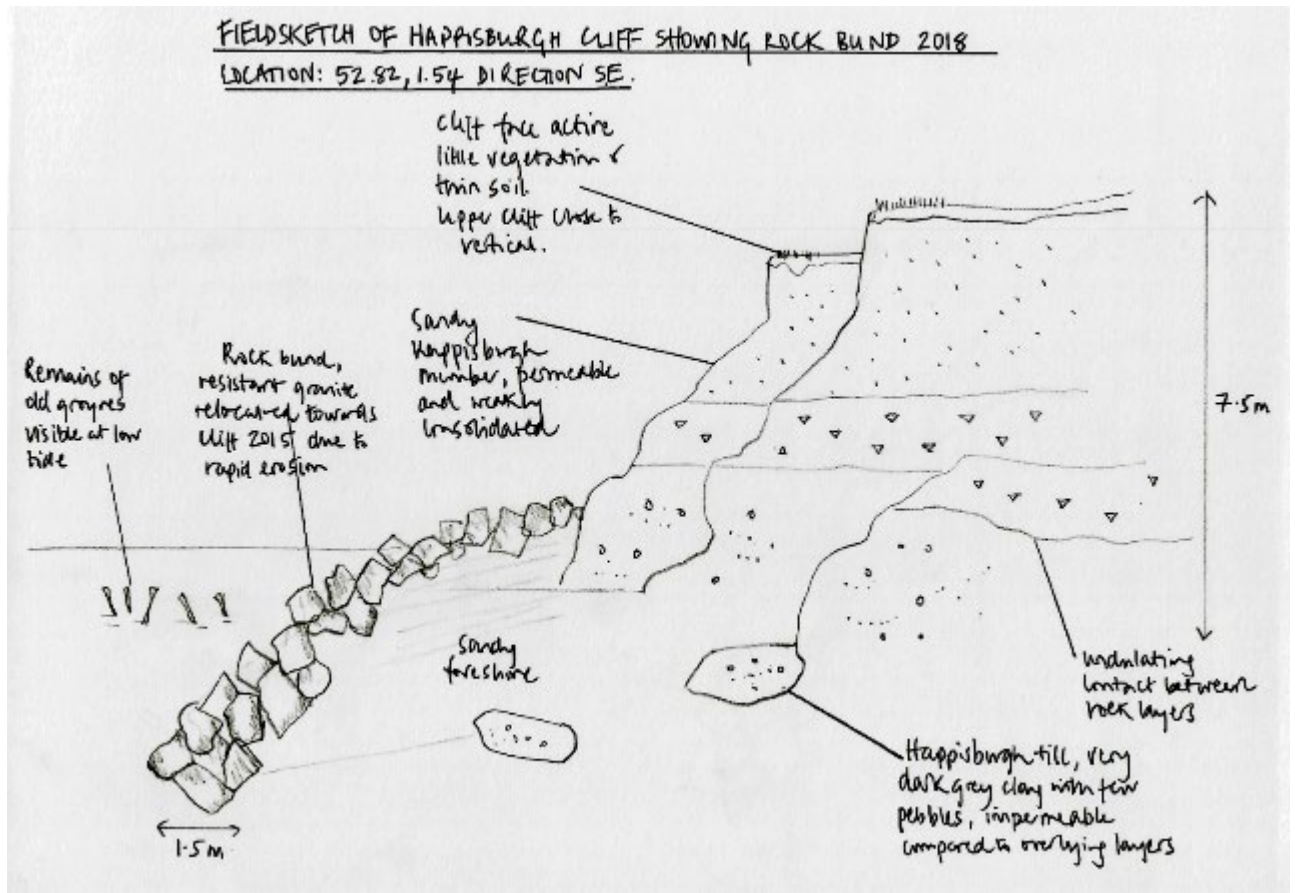 FIELDSKETCH OF HAPPISBURGH CLIFF SHOWING ROCK BUND 2018
LOCATION: 52.82, 1.54 DIRECTION SE.
Cliff face active
little vegetation &
thin soil
Upper cliff close to
vertical.
Sandy
Happisburgh
member, permeable
and weakly
consolidated
Rock bund,
resistant granite
relocated towards
cliff 2015 due to
rapid erosion
Remains of
old groynes
visible at low
tide
7.5m
Sandy
foreshore
undulating
contact between
rock layers
Happisburgh till, very
dark grey clay with few
pebbles, impermeable
compared to overlying layers
1.5m